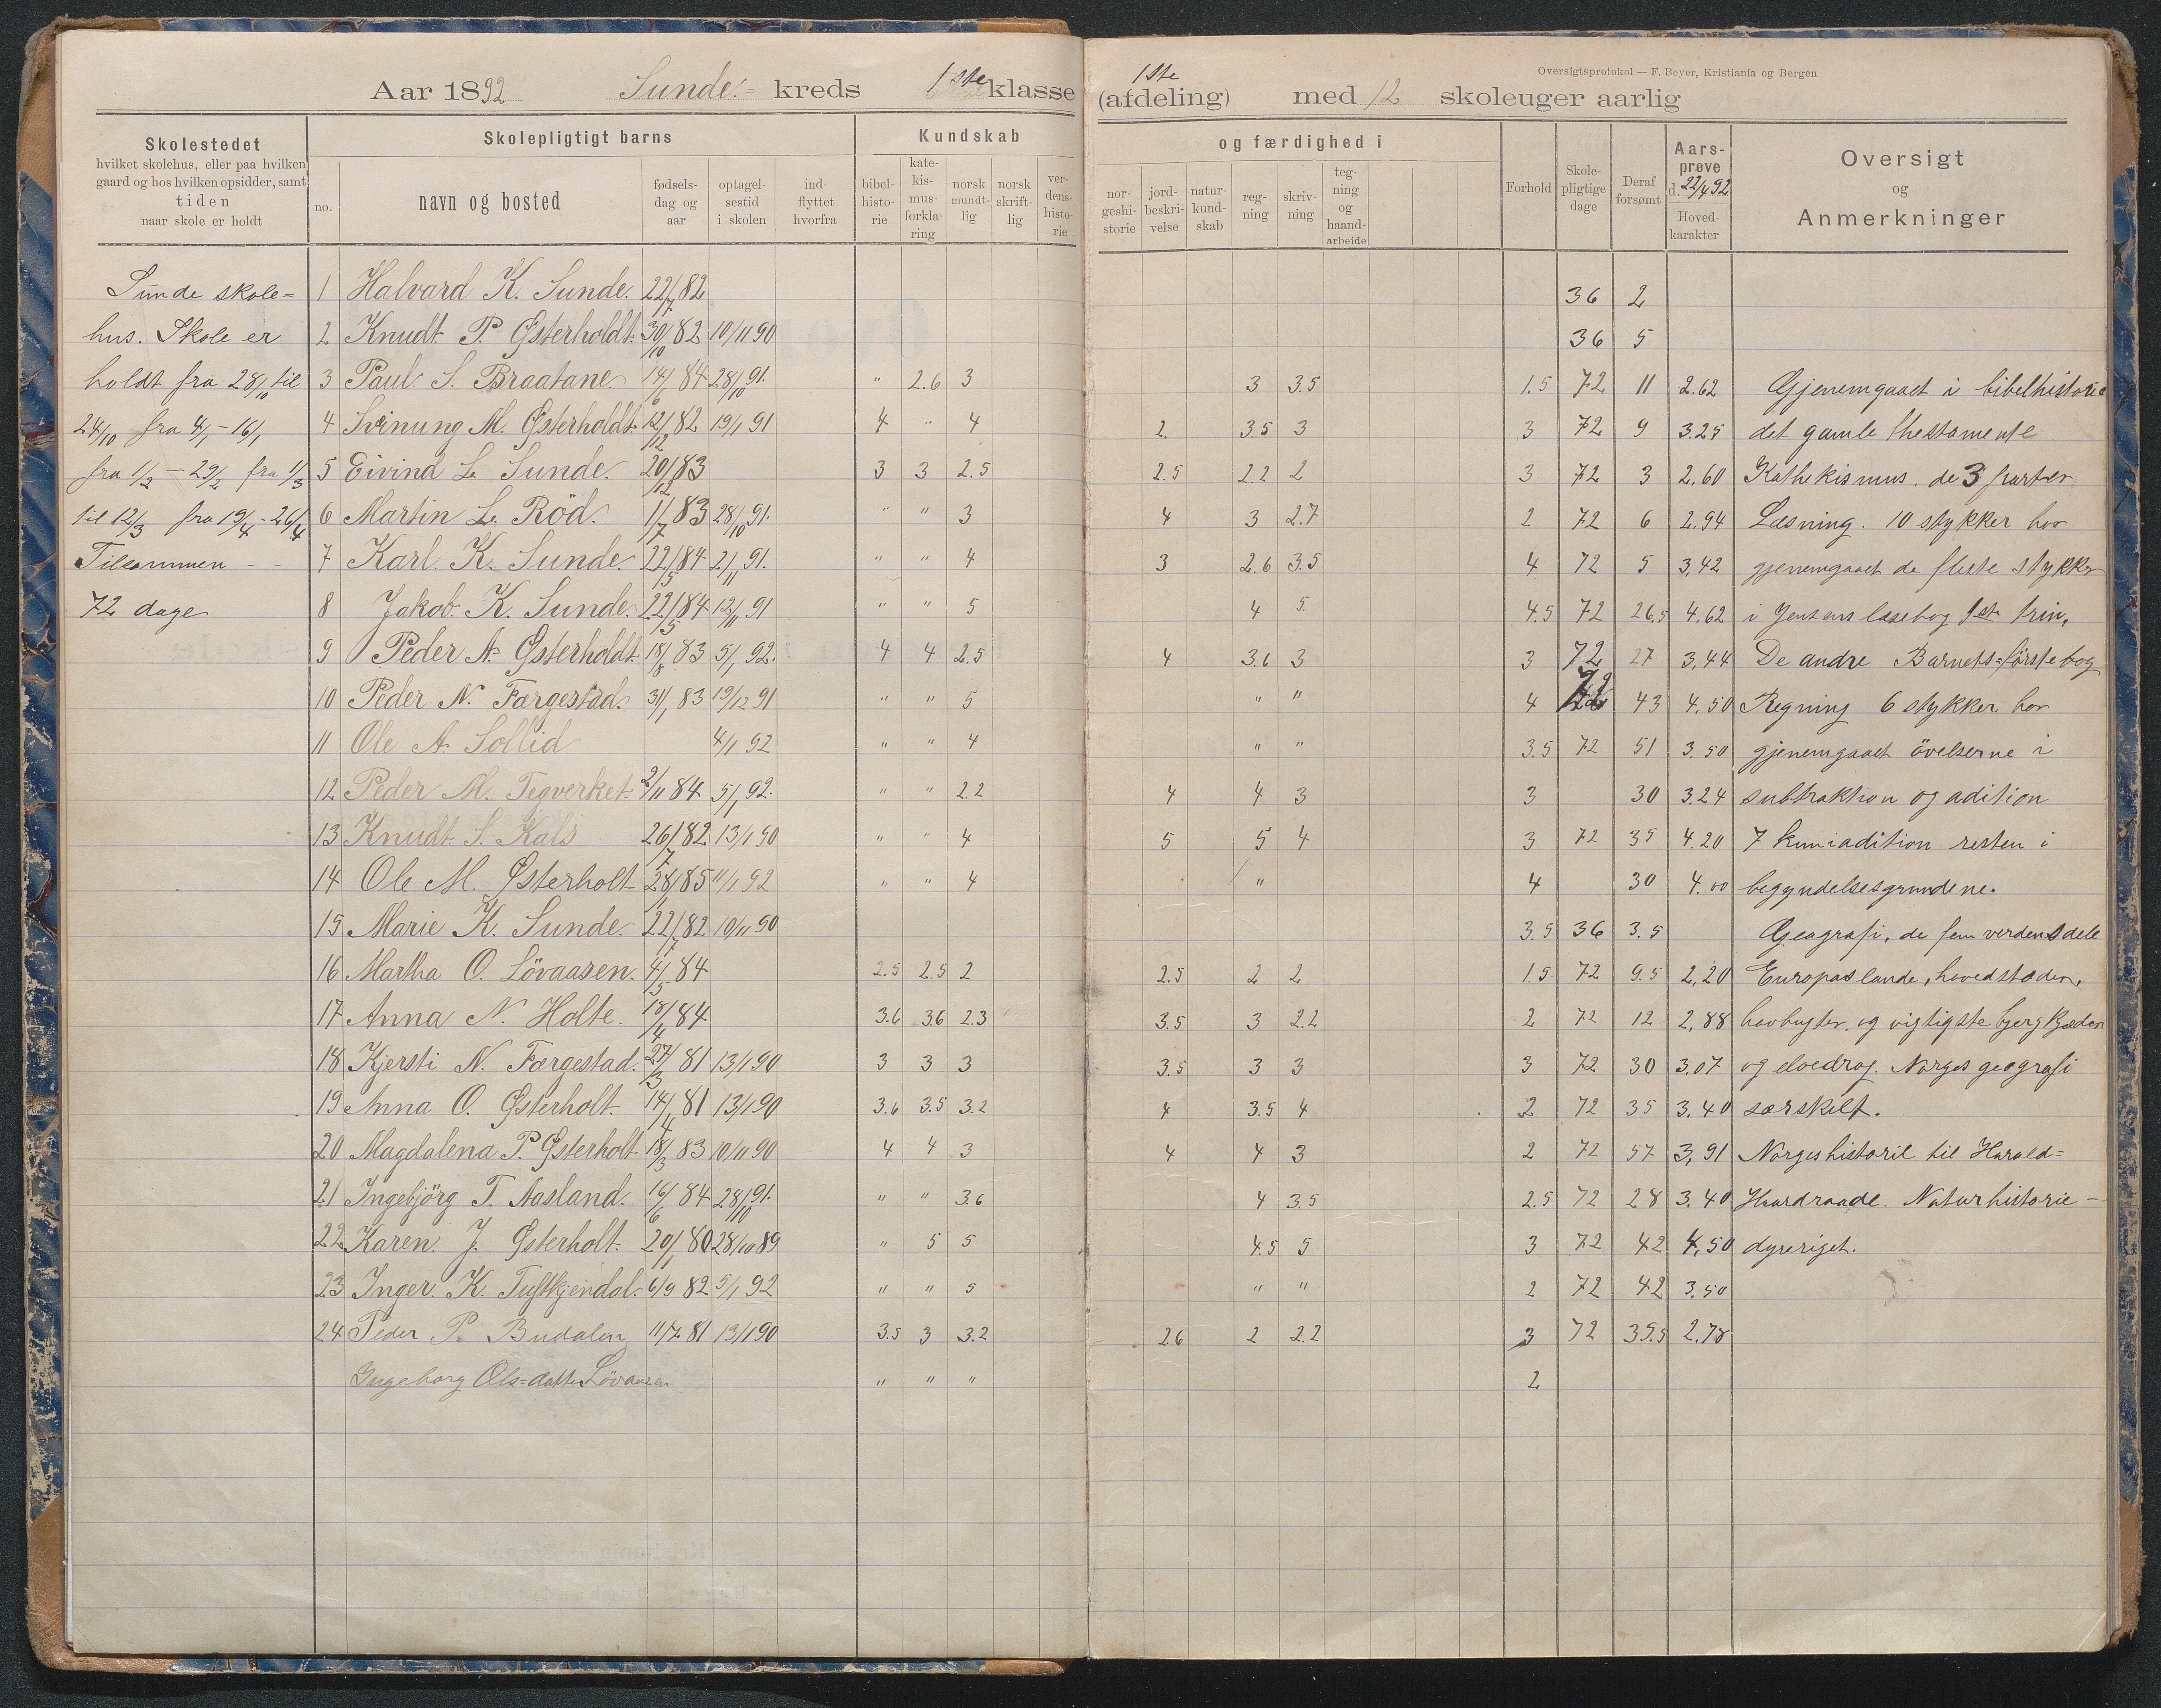 Oversigtsprotokol — F. Beyer, Kristiania og Bergen
Aar 1892 Sunde kreds 1ste klasse
1ste
(afdeling) med 12 skoleuger aarlig
Skolestedet
hvilket skolehus, eller paa hvilken
gaard og hos hvilken opsidder, samt
tiden
naar skole er holdt
Skolepligtigt barns
no.
navn og bosted
fødsels-
dag og
aar
optagel-
sestid
i skolen
ind-
flyttet
hvorfra
Kundskab
bibel-
histo-
rie
kate-
kis-
mus-
forkla-
ring
norsk
mundt-
lig
norsk
skrift-
lig
ver-
dens-
histo-
rie
og færdighed i
nor-
geshi-
storie
jord-
beskri-
velse
natur-
kund-
skab
reg-
ning
skriv-
ning
teg-
ning
og
haand-
arbeide
Forhold
Skole-
pligtige
dage
Deraf
forsømt
Aars-
prøve
d. 22/4 92
Hoved-
karakter
Oversigt
og
Anmerkninger
Sunde skole=
hus. Skole er
holdt fra 28/10 til
24/10 fra 4/1 - 16/1
fra 1/2 - 29/2 fra 1/3
til 12/3 fra 19/4 - 26/4
Tilsammen - -
72 dage
1 Halvard K. Sunde. 22/7 82 36 2
2 Knudt P. Østerholdt. 30/10 82 10/11 90 36 5
3 Paul S. Braatane 14/6 84 28/10 91. " 2.6 3 3 3.5 1.5 72 11 2.62 Gjenemgaaet i bibelhistorie
4 Svinung M. Østerholdt. 12/12 82 19/1 91 4 " 4 2. 3.5 3 3 72 9 3.25 det gamle thestamente
5 Eivind L. Sunde. 20/12 83 3 3 2.5 2.5 2.2 2 3 72 3 2.60 Kathekismus. de 3 parter
6 Martin L. Röd. 1/7 83 28/10 91. " " 3 4 3 2.7 2 72 6 2.94 Læsning. 10 stykker har
7 Karl K. Sunde. 22/5 84 2/11 91. " " 4 3 2.6 3.5 4 72 5 3,42 gjenemgaaet de fleste stykker
8 Jakob K. Sunde. 22/5 84 12/11 91 " " 5 4 5. 4.5 72 26.5 4,62 i Jensens læsebog 1ste trin,
9 Peder A. Østerholdt. 18/8 83 5/1 92. 4 4 2.5 4 3.6 3 3 72 27 3,44 De andre Barnets=förste bog
10 Peder N. Færgestad. 31/1 83 19/12 91 " " 5 " " 4 72 43 4.50 Regning 6 stykker har
11 Ole A. Sollid 4/1 92 " " 4 " " 3.5 72 51 3.50 gjenemgaaet övelserne i
12 Peder M. Tegverket. 2/11 84 5/1 92. " " 2.2 4 4 3 3 30 3.24 subtraktion og adition
13 Knudt S. Kals 26/7 82 13/1 90 " " 4 5 5 4 3 72 35 4.20 7 kun i adition resten i
14 Ole M. Østerholt 28/1 85 11/1 92 " " 4 " 4 30 4.00 begyndelsesgrundene.
15 Marie K. Sunde. 22/7 82 10/11 90 3.5 36 3.5 Geagrafi, de fem verdensdele
16 Martha O. Lövaasen. 4/5 84 2.5 2.5 2 2.5 2 2 1.5 72 9.5 2,20 Europas lande, hovedstæder,
17 Anna N. Holte. 18/4 84 3.6 3.6 2.3 3.5 3 2.2 2 72 12 2,88 havbugter, og vigtigste bjergkjæder
18 Kjersti N. Færgestad. 27/3 81 13/1 90 3 3 3 3.5 3 3 3 72 30 3.07 og elvedrag. Norges geografi
19 Anna O. Østerholt. 14/4 81 13/1 90 3.6 3.5 3.2 4 3.5 4 2 72 35 3,40 særskilt.
20 Magdalena P. Østerholt 18/3 83 10/11 90 4 4 3 4 4 3 2 72 57 3,91 Norgeshistorie til Harald=
21 Ingebjörg T. Aasland. 16/6 84 28/10 91. " " 3.6 4 3.5 2.5 72 28 3.40 Haardraade. Naturhistorie -
22 Karen. J. Østerholt. 20/1 80 28/10 89 " 5 5 4.5 5 3 72 42 4,50 dyreriget.
23 Inger. K. Tuftkjendal. 6/9 82 5/1 92 " " 5 " " 2 72 42 3.50
24 Peder P. Budalen 11/7 81 13/1 90 3.5 3 3.2 2.6 2 2.2 3 72 35.5 2,78
Ingeborg Ols=datter Lövaasen " " " 2